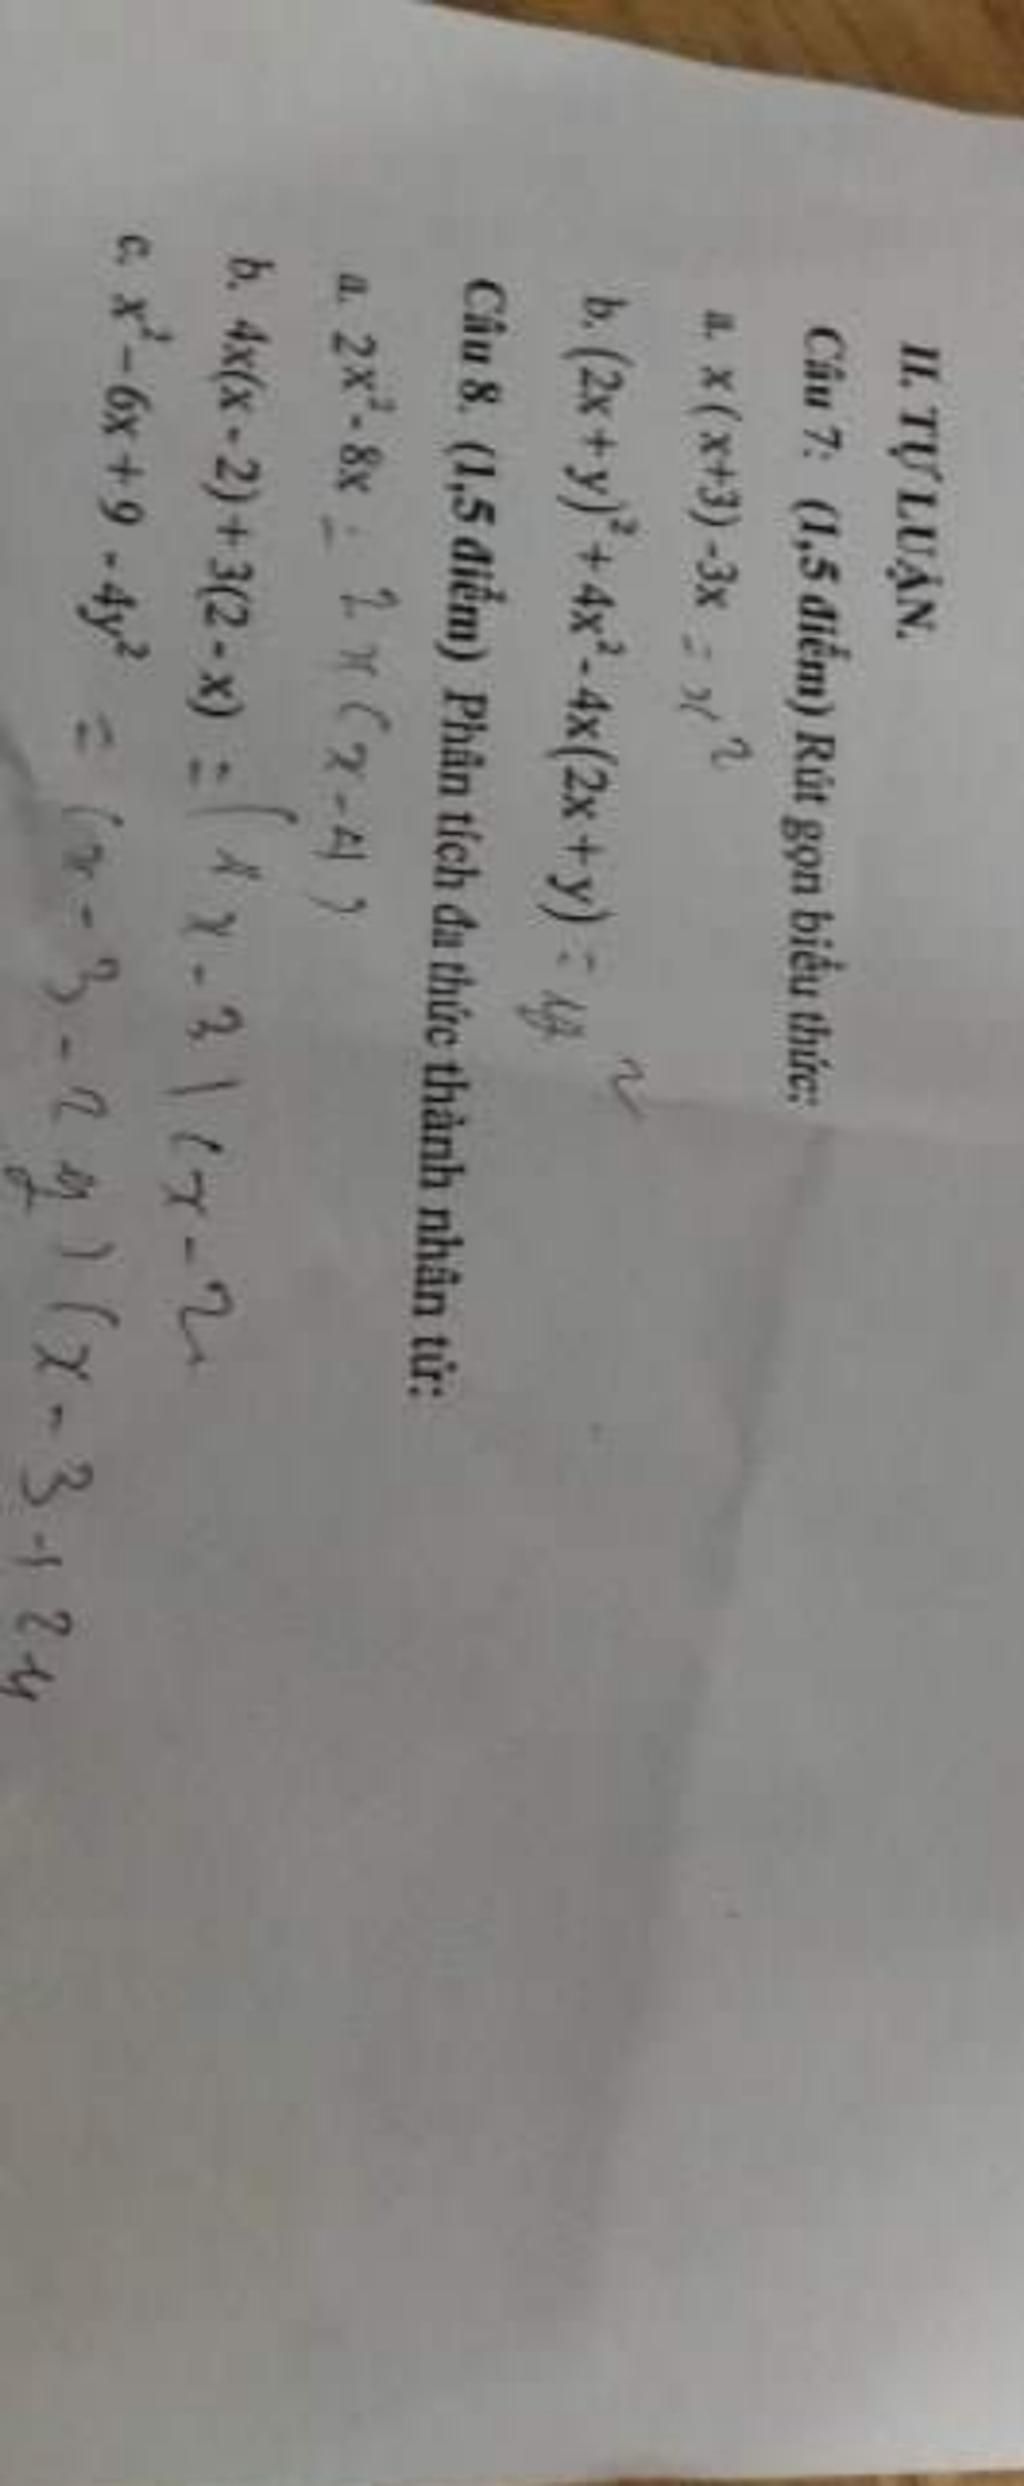 II. TỰ LUẬN.
Câu 7: (1,5 điểm) Rút gọn biểu thức:
a. x(x+3)-3x = x²
b. (2x+y)²+4x²-4x(2x+y) = y²
Câu 8. (1,5 điểm) Phân tích đa thức thành nhân tử:
a. 2x²-8x = 2x(x-4)
b. 4x(x-2)+3(2-x) = (4x-3)(x-2
c. x²-6x+9-4y² = (x-3-2y)(x-3+2y